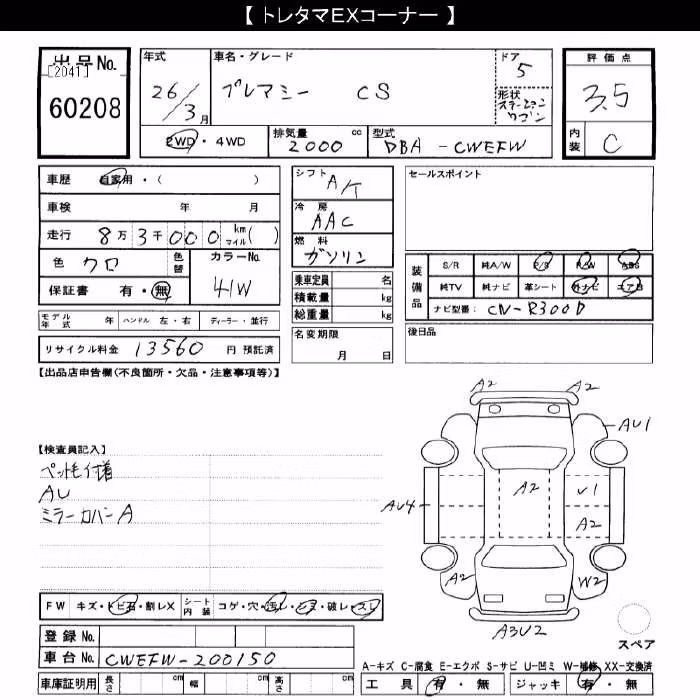 【 トレタマEXコーナー 】
出品No.
[2041]
60208
年式
26/3月
車名・グレード
プレマシー CS
ドア
5
形状
ステーションワゴン
評価点
3.5
内装
C
2WD・4WD
排気量 cc
2000
型式
DBA-CWEFW
車歴 自家用・( )
車検 年 月
走行 8万3千000 km マイル( )
色 クロ
色替
カラーNo.
41W
保証書 有・無
モデル年式 年 ハンドル 左・右 ディーラー・並行
リサイクル料金 13560 円 預託済
シフト
A/K
冷房
AAC
燃料
ガソリン
乗車定員 名
積載量 kg
総重量 kg
名変期限
月 日
セールスポイント
装備品
S/R 純A/W P/S P/W ABS
純TV 純ナビ 革シート 外ナビ エアB
ナビ型番: CN-R300D
後日品
【出品店申告欄(不良箇所・欠品・注意事項等)】
【検査員記入】
ペット毛付着
AU
ミラーカバーA
A2 A2
AU1
A2 U1
AU4
A2
A2 W2
A3U2
スペア
FW キズ・トビ石・割レX
シート内装 コゲ・穴・汚レ・シミ・破レ・スレ
登録No.
車台No. CWEFW-200150
A-キズ C-腐食 E-エクボ S-サビ U-凹ミ W-補修 XX-交換済
車庫証明用 長さ cm 幅 cm 高さ cm
工具 有・無 ジャッキ 有・無